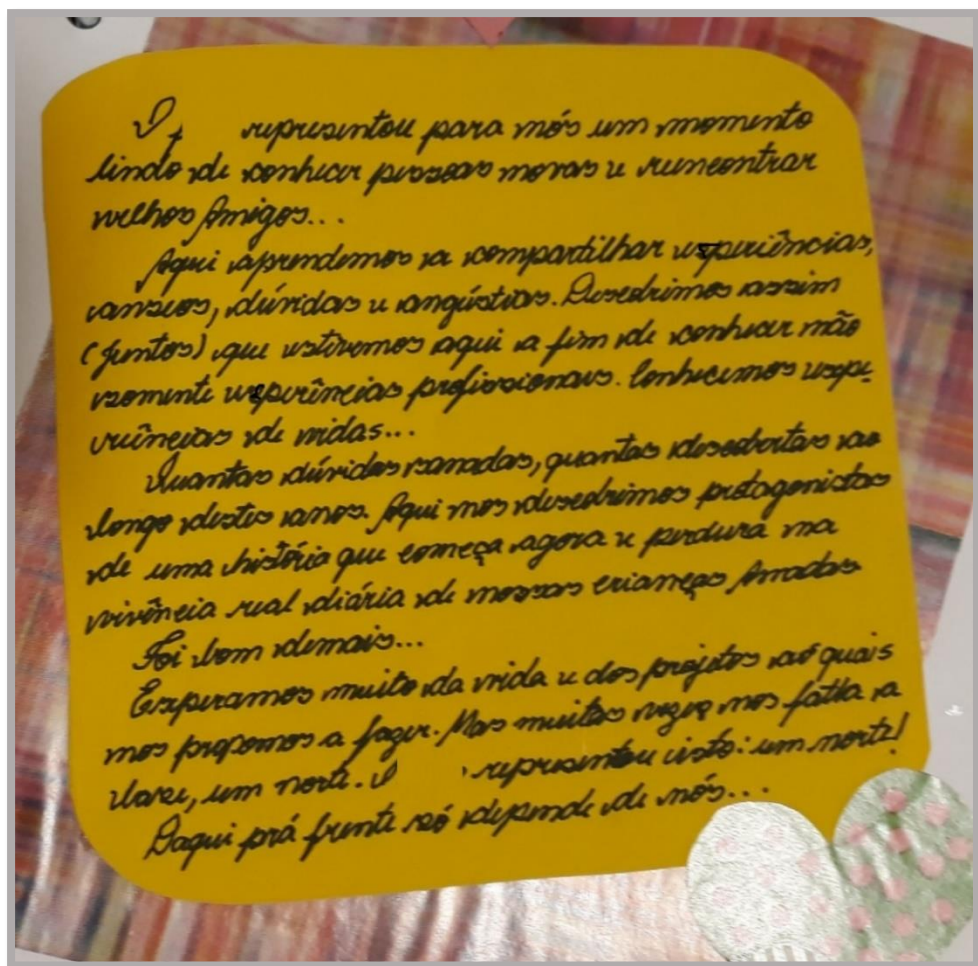 O representou para nós um momento
lindo de conhecer pessoas novas e reencontrar
velhos Amigos...
Aqui aprendemos a compartilhar experiências,
anseios, dúvidas e angústias. Descobrimos assim
(juntos) que estivemos aqui a fim de conhecer não
somente experiências profissionais. Conhecemos expe-
riências de vidas...
Quantas dúvidas sanadas, quantas descobertas ao
longo destes anos. Aqui nos descobrimos protagonistas
de uma história que começa agora e perdura na
vivência real diária de nossas crianças Amadas
Foi bom demais...
Esperamos muito da vida e dos projetos aó quais
nos propomos a fazer. Mas muitas vezes nos falta a
base, um norte. O representou isto: um norte!
Daqui prá frente só depende de nós...